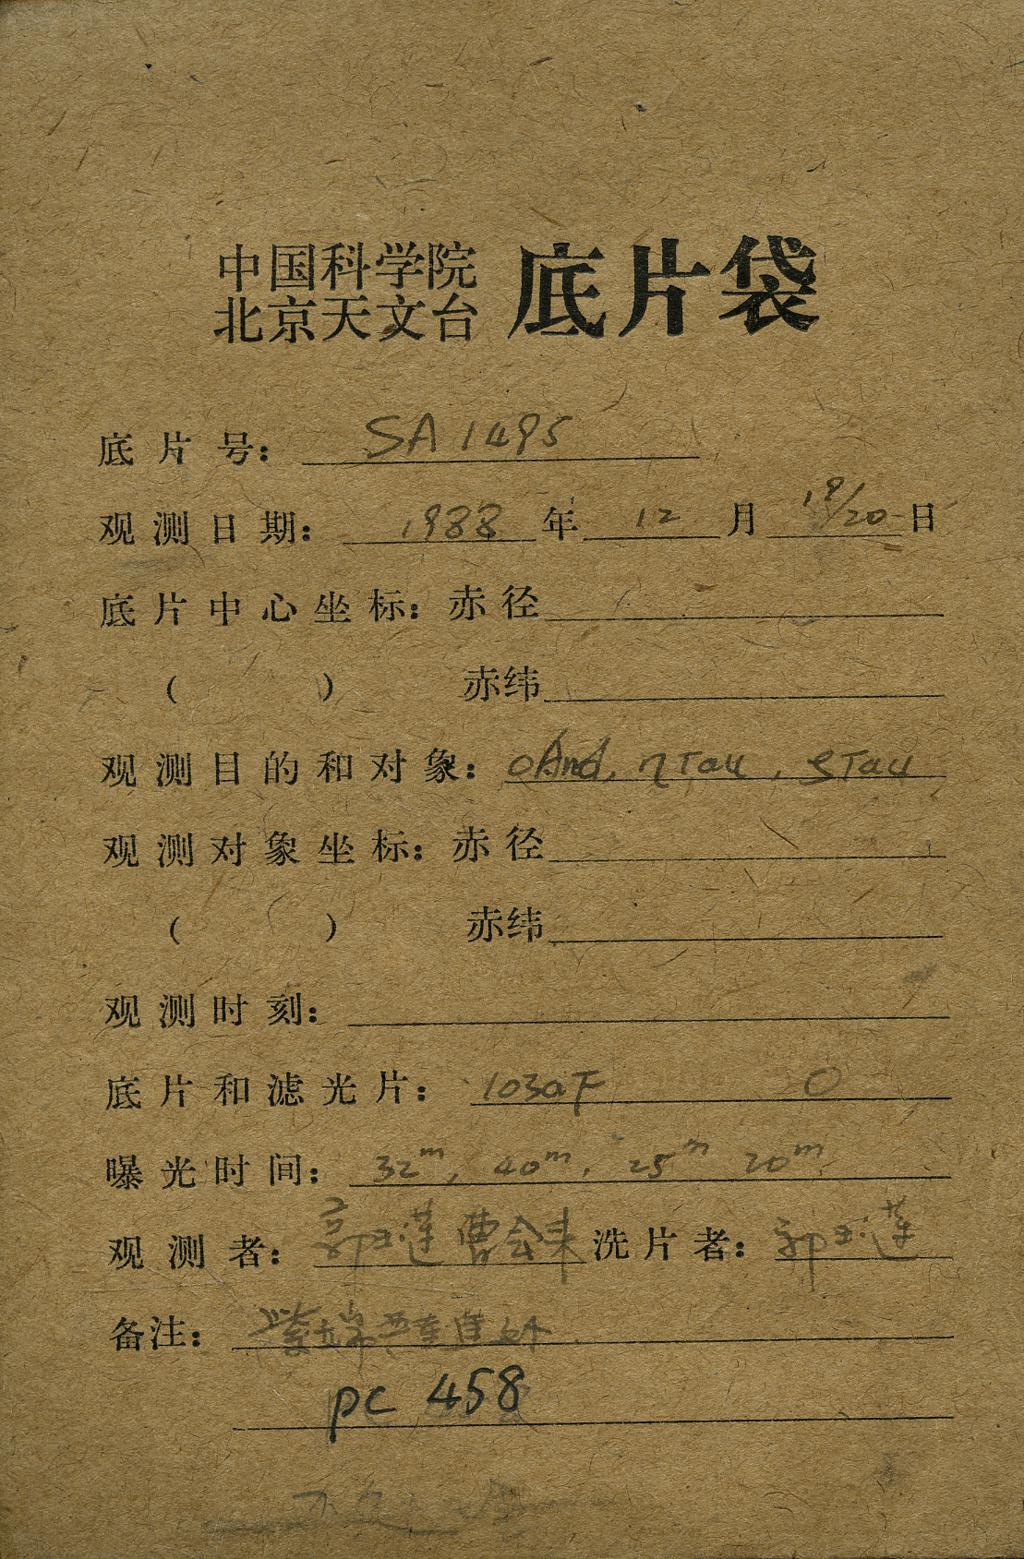 中国科学院
北京天文台 底片袋
底片号: SA1495
观测日期: 1988 年 12 月 19/20 日
底片中心坐标: 赤径
( ) 赤纬
观测目的和对象: oAnd, ηTau, ςTau
观测对象坐标: 赤径
( ) 赤纬
观测时刻:
底片和滤光片: 103aF O
曝光时间: 32m, 40m, 25m 20m
观测者: 郭玉莲 曹会来 洗片者: 郭玉莲
备注: 紫端
pc 458